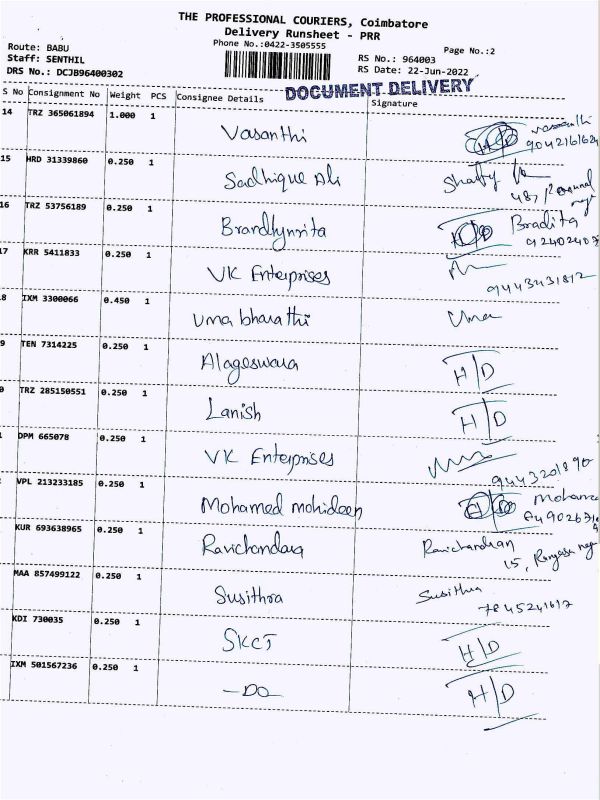 THE PROFESSIONAL COURIERS, Coimbatore
Delivery Runsheet - PRR
Phone No.:0422-3505555
Page No.:2
Route: BABU
Staff: SENTHIL
DRS No.: DCJB96400302
RS No.: 964003
RS Date: 22-Jun-2022
DOCUMENT DELIVERY
S No Consignment No Weight PCS Consignee Details Signature
14 TRZ 365061894 1.000 1 Vasanthi
15 HRD 31339860 0.250 1 Sadhique Ali
16 TRZ 53756189 0.250 1 Brandlynrita Bradita
17 KRR 5411833 0.250 1 VK Enterprises
9443431812
8 IXM 3300066 0.450 1 Uma bharathi Uma
9 TEN 7314225 0.250 1 Alageswara H/D
0 TRZ 285150551 0.250 1 Lanish H/D
DPM 665078 0.250 1 VK Enterprises
9443201890
VPL 213233185 0.250 1 Mohamed mohideen
KUR 693638965 0.250 1 Ravichandara Ravichandran
15,
MAA 857499122 0.250 1 Susithra Susithra
7845241617
KDI 730035 0.250 1 SKCT H/D
IXM 501567236 0.250 1 -DO- H/D